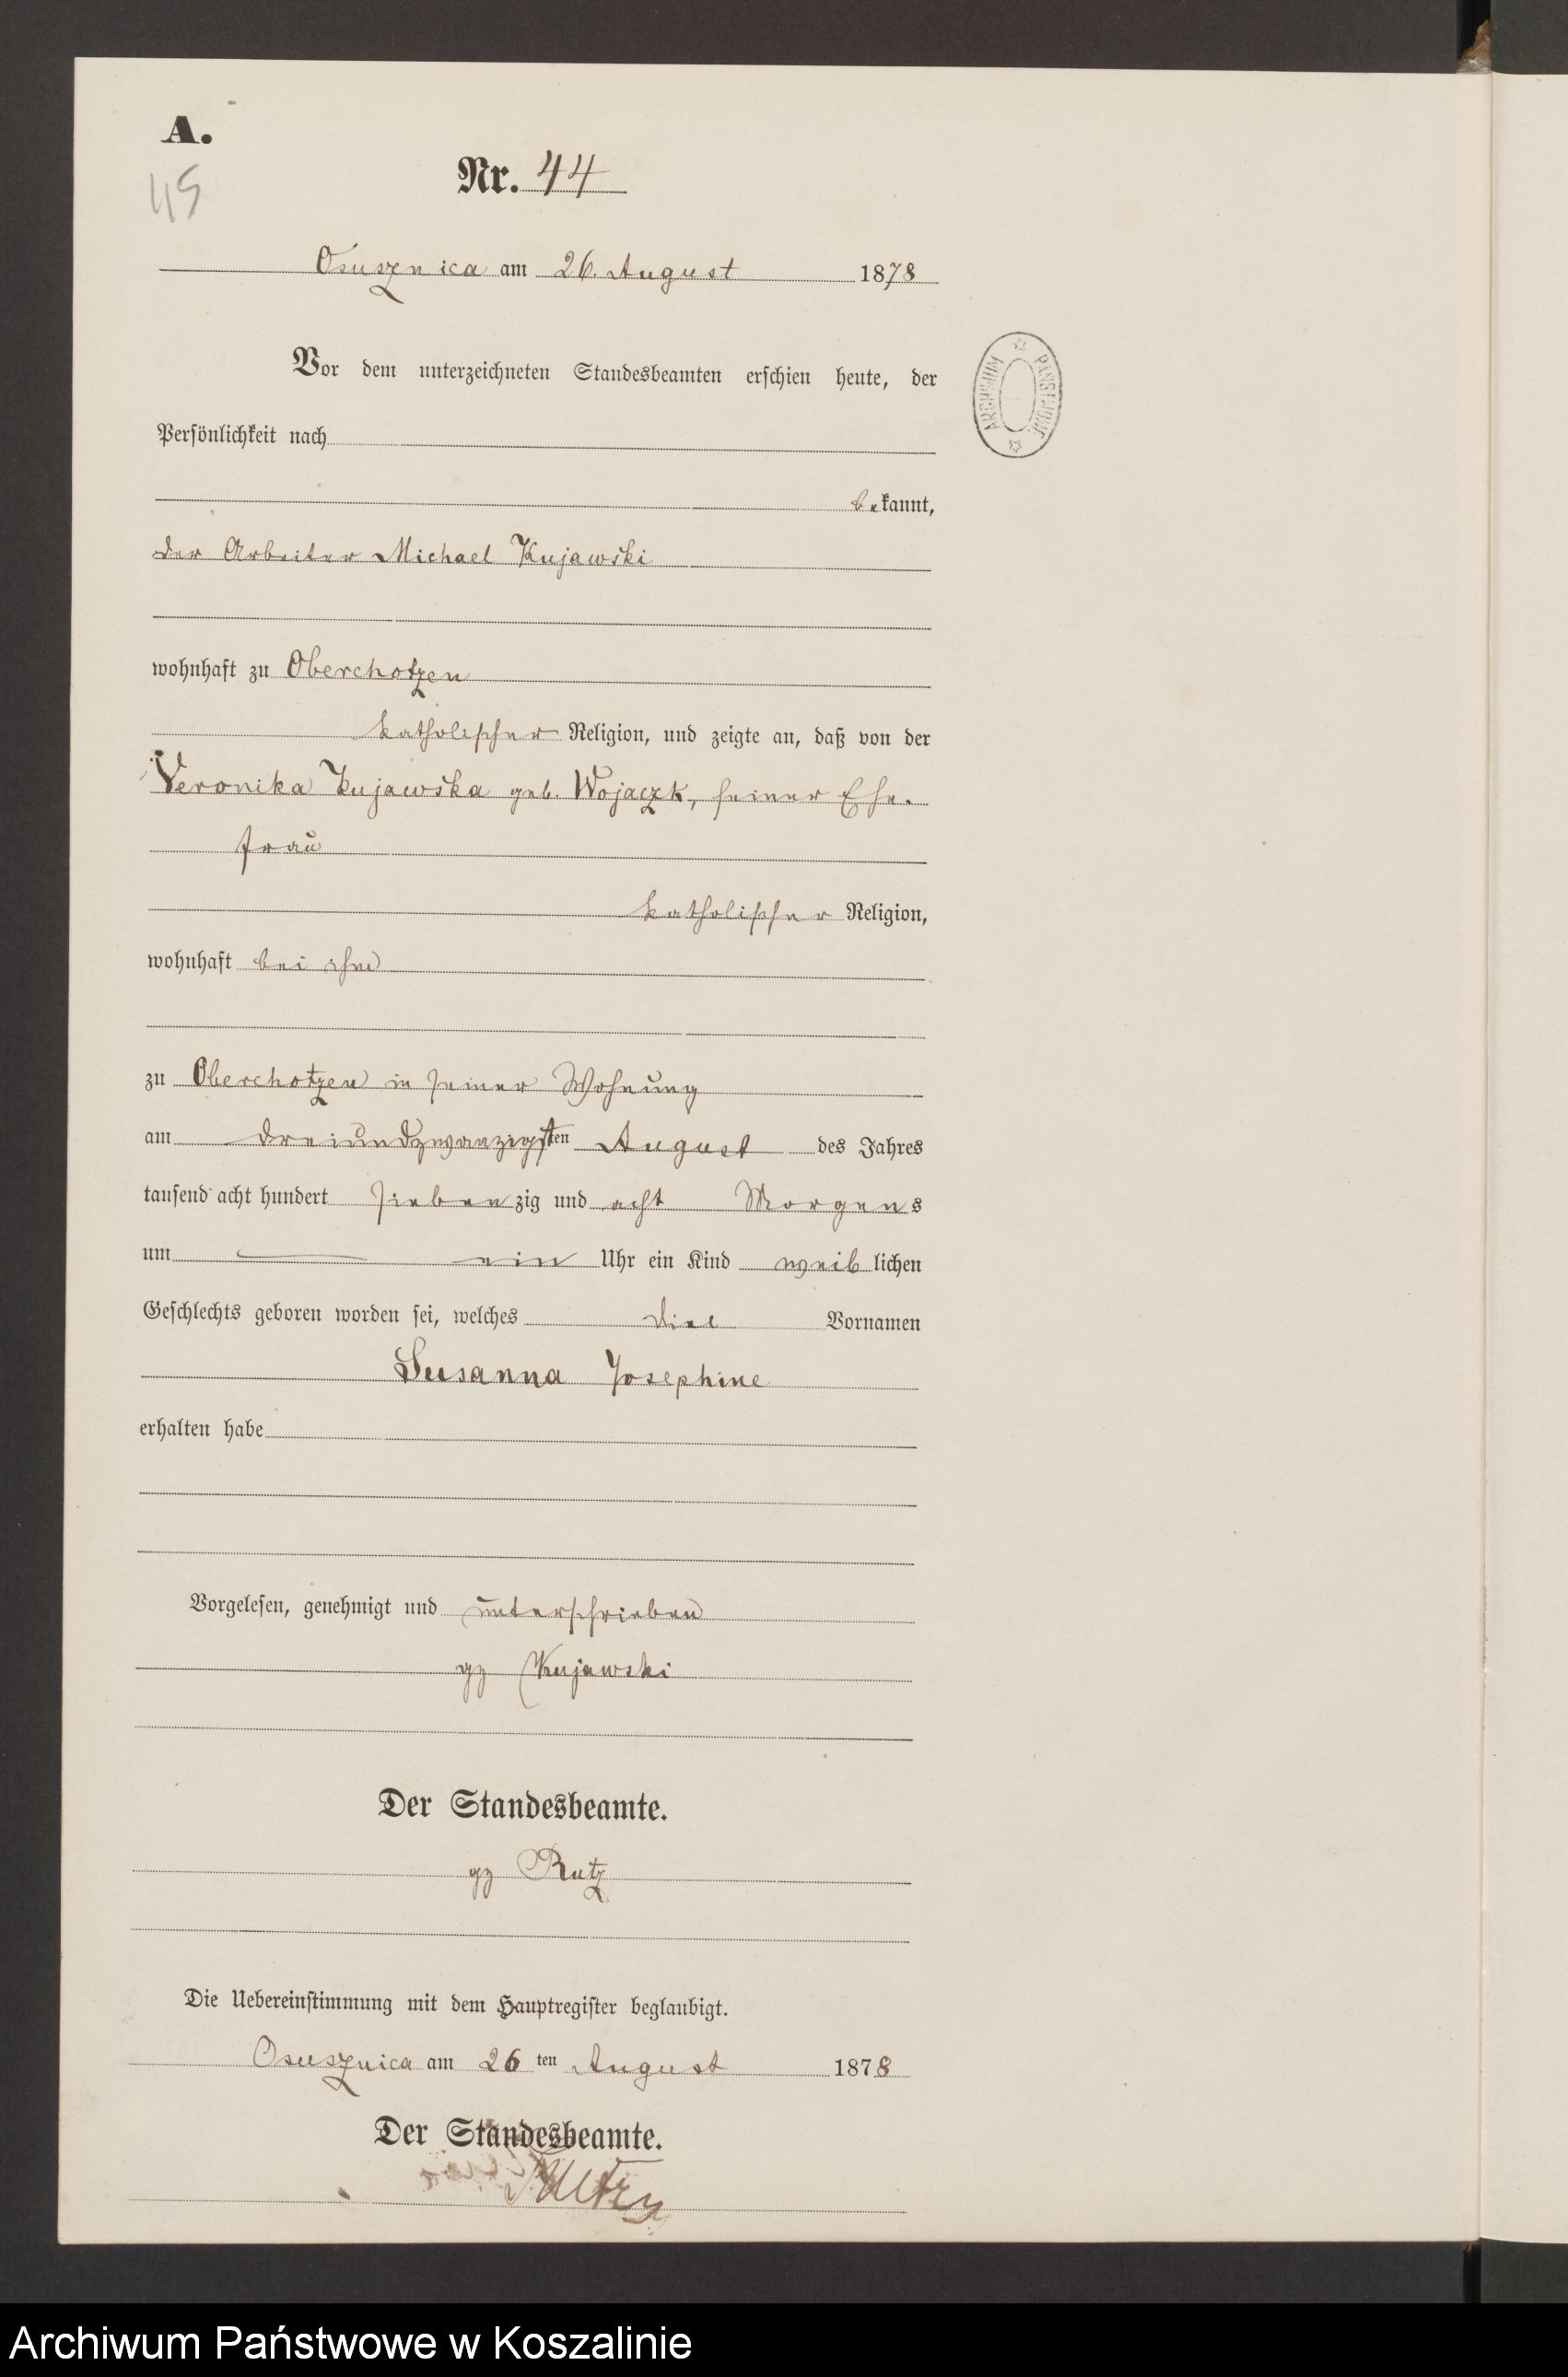 A.
45
Nr. 44
Osusznica am 26. August 1878
ARCHIWUM PAŃSTWOWE
Vor dem unterzeichneten Standesbeamten erschien heute, der
Persönlichkeit nach
bekannt,
der Arbeiter Michael Kujawski
wohnhaft zu Oberchotzen
katholischer Religion, und zeigte an, daß von der
Veronika Kujawska geb. Wojaczk, seiner Ehe-
frau
katholischer Religion,
wohnhaft bei ihm
zu Oberchotzen in seiner Wohnung
am dreiundzwanzigsten August des Jahres
tausend acht hundert siebenzig und acht Morgens
um ein Uhr ein Kind weiblichen
Geschlechts geboren worden sei, welches die Vornamen
Susanna Josephine
erhalten habe
Vorgelesen, genehmigt und unterschrieben
gz Kujawski
Der Standesbeamte.
gz Rutz
Die Uebereinstimmung mit dem Hauptregister beglaubigt.
Osusznica am 26 ten August 1878
Der Standesbeamte.
Archiwum Państwowe w Koszalinie